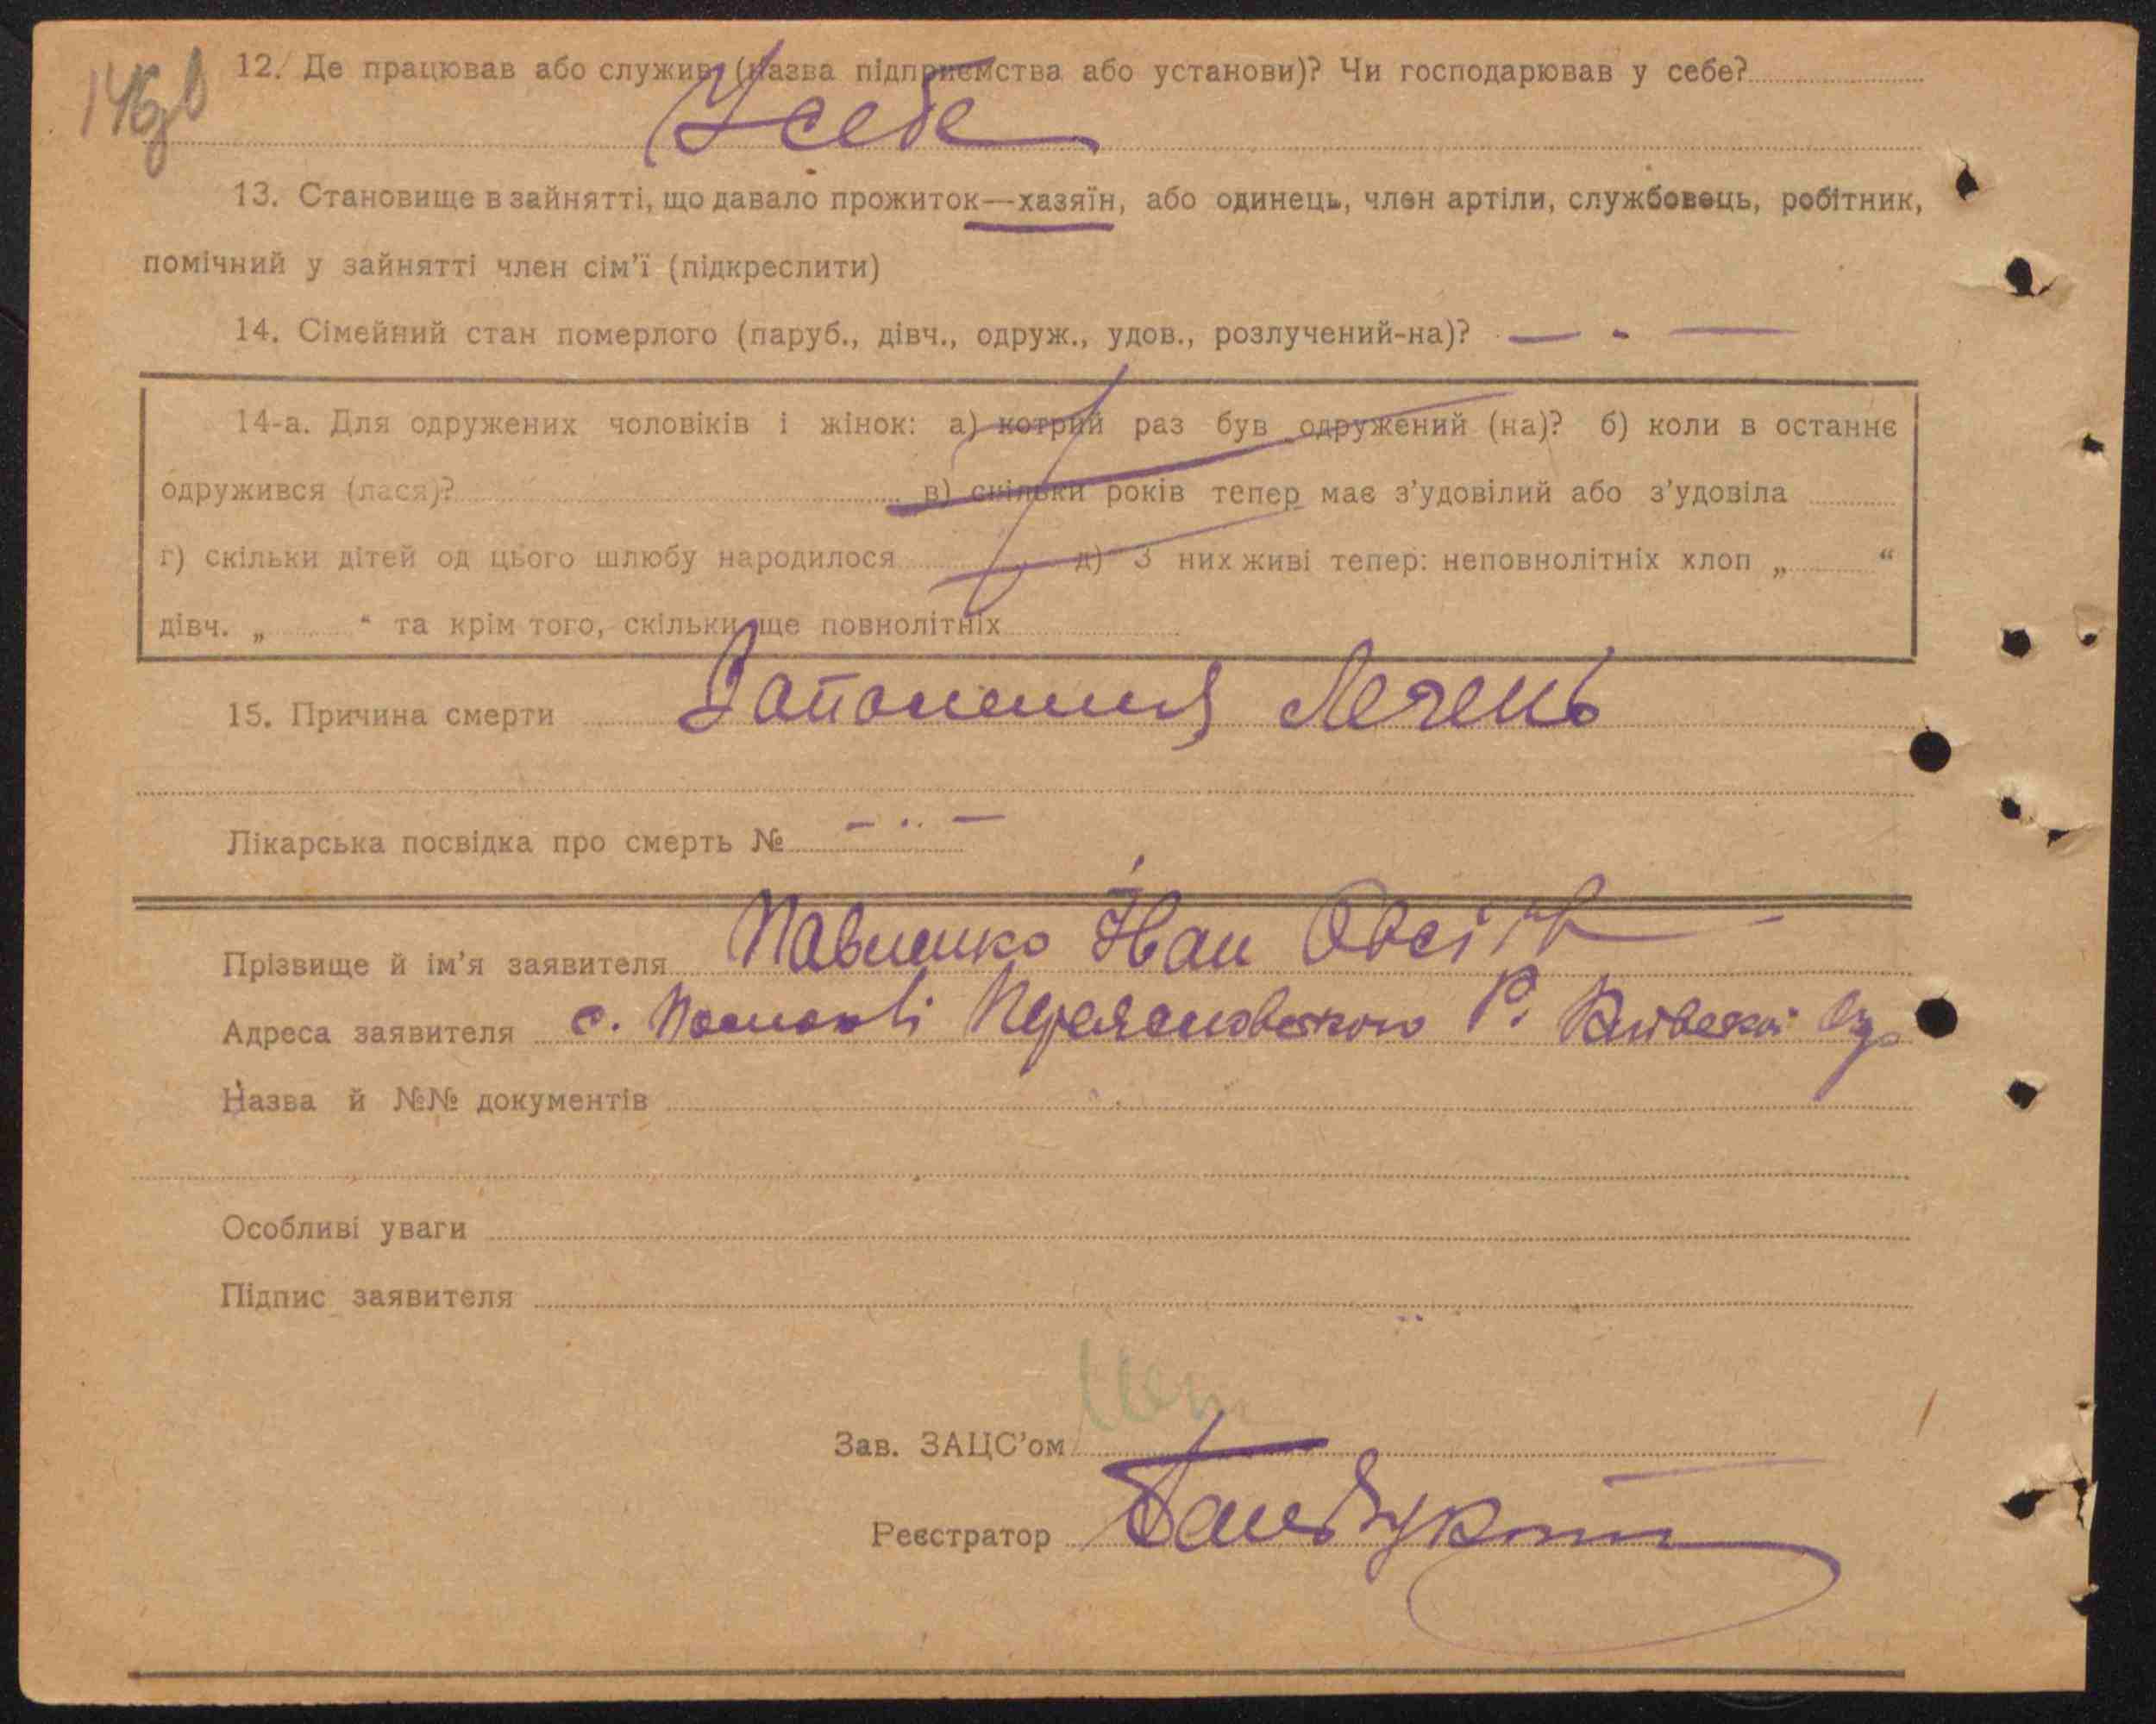 146зв
12. Де працював або служив (назва підприємства або установи)? Чи господарював у себе?
У себе
13. Становище в зайнятті, що давало прожиток—хазяїн, або одинець, член артіли, службовець, робітник,
помічний у зайнятті член сім'ї (підкреслити)
14. Сімейний стан померлого (паруб., дівч., одруж., удов., розлучений-на)? — - —
14-а. Для одружених чоловіків і жінок: а) котрий раз був одружений (на)? б) коли в останнє
одружився (лася)? в) скільки років тепер має з'удовілий або з'удовіла
г) скільки дітей од цього шлюбу народилося д) З них живі тепер: неповнолітніх хлоп „ “
дівч. „ “ та крім того, скільки ще повнолітніх
15. Причина смерти Запоненния Лечень
Лікарська посвідка про смерть № — .. —
Прізвище й ім'я заявителя Павленко Іван
Адреса заявителя с. Переяславського Р. Київської
Назва й №№ документів
Особливі уваги
Підпис заявителя
Зав. ЗАЦС'ом
Реєстратор